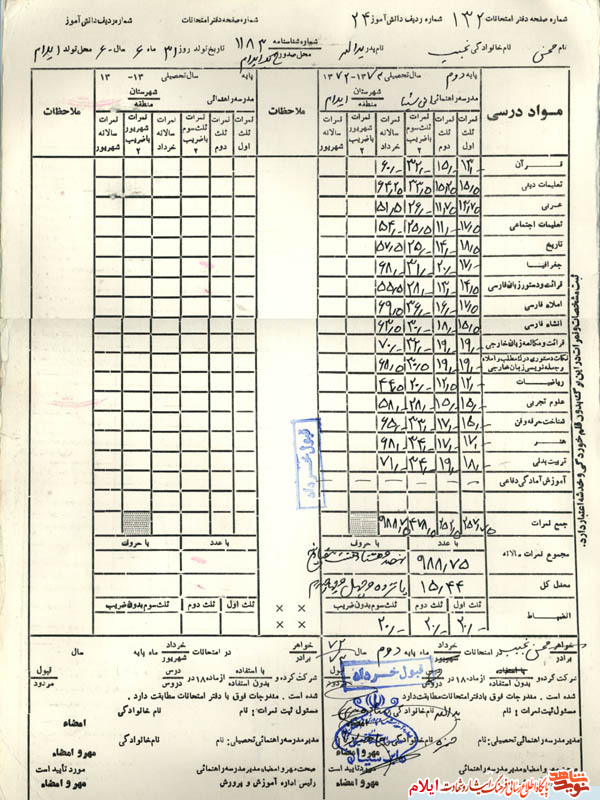 شماره صفحه دفتر امتحانات ۱۳۲ شماره ردیف دانش آموز ۲۴ شماره صفحه دفتر امتحانات شماره ردیف دانش آموز
نام محسن نام خانوادگی نجیب نام پدر یدالله شماره شناسنامه ۱۱۸۳ محل صدور ایلام تاریخ تولد روز ۳۱ ماه ۶ سال ۶ محل تولد ایلام
مواد درسی
پایه دوم سال تحصیلی ۷۳-۱۳۷۲
مدرسه راهنمائی ابن سینا شهرستان منطقه ایلام
نمرات ثلث اول
نمرات ثلث دوم
نمرات ثلث سوم با ضریب ۲
نمرات سالانه خرداد
نمرات با ضریب شهریور ۲
نمرات سالانه شهریور
ملاحظات
پایه سال تحصیلی ۱۳ - ۱۳
مدرسه راهنمائی شهرستان منطقه
نمرات ثلث اول
نمرات ثلث دوم
نمرات ثلث سوم با ضریب ۲
نمرات سالانه خرداد
نمرات با ضریب شهریور ۲
نمرات سالانه شهریور
ملاحظات
قرآن ۱۳/- ۱۵/- ۳۲/- ۶۰/-
تعلیمات دینی ۱۵/۵ ۳۳/۵ ۶۴/۲۵
عربی ۱۳/۷۵ ۱۱/۷۵ ۲۶/- ۵۱/۵
تعلیمات اجتماعی ۱۷/۵ ۱۱/۵ ۲۵/- ۵۴/-
تاریخ ۱۸/۵ ۱۴/- ۲۵/- ۵۷/۵
جغرافیا ۱۷/- ۲۰/- ۳۱/- ۶۸/-
قرائت و دستور زبان فارسی ۱۴/۵ ۱۳/- ۲۸/- ۵۵/۵
املاء فارسی ۱۷/- ۱۶/۵ ۳۶/- ۶۹/۵
انشاء فارسی ۱۵/۵ ۱۸/- ۳۰/- ۶۳/۵
قرائت و مکالمه زبان خارجی ۱۹/- ۱۹/- ۳۲/- ۷۰/-
نکات دستوری درک مطلب و املاء و جمله نویسی زبان خارجی ۱۹/- ۱۹/- ۳۰/۵ ۶۸/۵
ریاضیات ۱۲/- ۱۲/۵ ۲۰/- ۴۴/۵
علوم تجربی ۱۵/- ۱۵/- ۲۸/- ۵۸/-
شناخت حرفه و فن ۱۵/- ۱۷/- ۳۳/- ۶۵/-
هنر ۱۷/- ۱۷/- ۳۴/- ۶۸/-
تربیت بدنی ۱۸/- ۱۹/- ۳۴/- ۷۱/-
آموزش آمادگی دفاعی
جمع نمرات ۲۵۷/۷۵ ۴۷۸/۵ ۹۸۸/۷۵
با عدد با حروف با عدد با حروف
مجموع نمرات سالانه ۹۸۸/۷۵
معدل کل ۱۵/۴۴ پانزده و چهل و چهار صدم
ثلث اول ثلث دوم ثلث سوم بدون ضریب ثلث اول ثلث دوم ثلث سوم بدون ضریب
انضباط ۲۰/- ۲۰/- ۲۰/-
قبول خرداد
ثبت مشخصات و نمرات در این برگه بدون قلم خوردگی و خدشه اعتبار دارد.
خواهر برادر محسن نجیب در امتحانات خرداد شهریور ماه پایه دوم سال ۷۲ ۷۳
شرکت کرده و با استفاده بدون استفاده از ماده ۱۸ در درس قبول مردود
قبول خرداد
شده است. مندرجات فوق با دفتر امتحانات مطابقت دارد.
مسئول ثبت نمرات: نام یدالله نام خانوادگی امضاء
مدیر مدرسه راهنمائی تحصیلی: نام حمزه نام خانوادگی مهر و امضاء
صحت مهر و امضاء مدیر مدرسه راهنمائی مورد تأیید است
رئیس اداره آموزش و پرورش مهر و امضاء
خواهر برادر در امتحانات خرداد شهریور ماه پایه سال
شرکت کرده و با استفاده بدون استفاده از ماده ۱۸ در درس قبول مردود
شده است. مندرجات فوق با دفتر امتحانات مطابقت دارد.
مسئول ثبت نمرات: نام نام خانوادگی امضاء
مدیر مدرسه راهنمائی تحصیلی: نام نام خانوادگی مهر و امضاء
صحت مهر و امضاء مدیر مدرسه راهنمائی مورد تأیید است
رئیس اداره آموزش و پرورش مهر و امضاء
نوید شاهد پایگاه اطلاع رسانی فرهنگ ایثار و شهادت ایلام